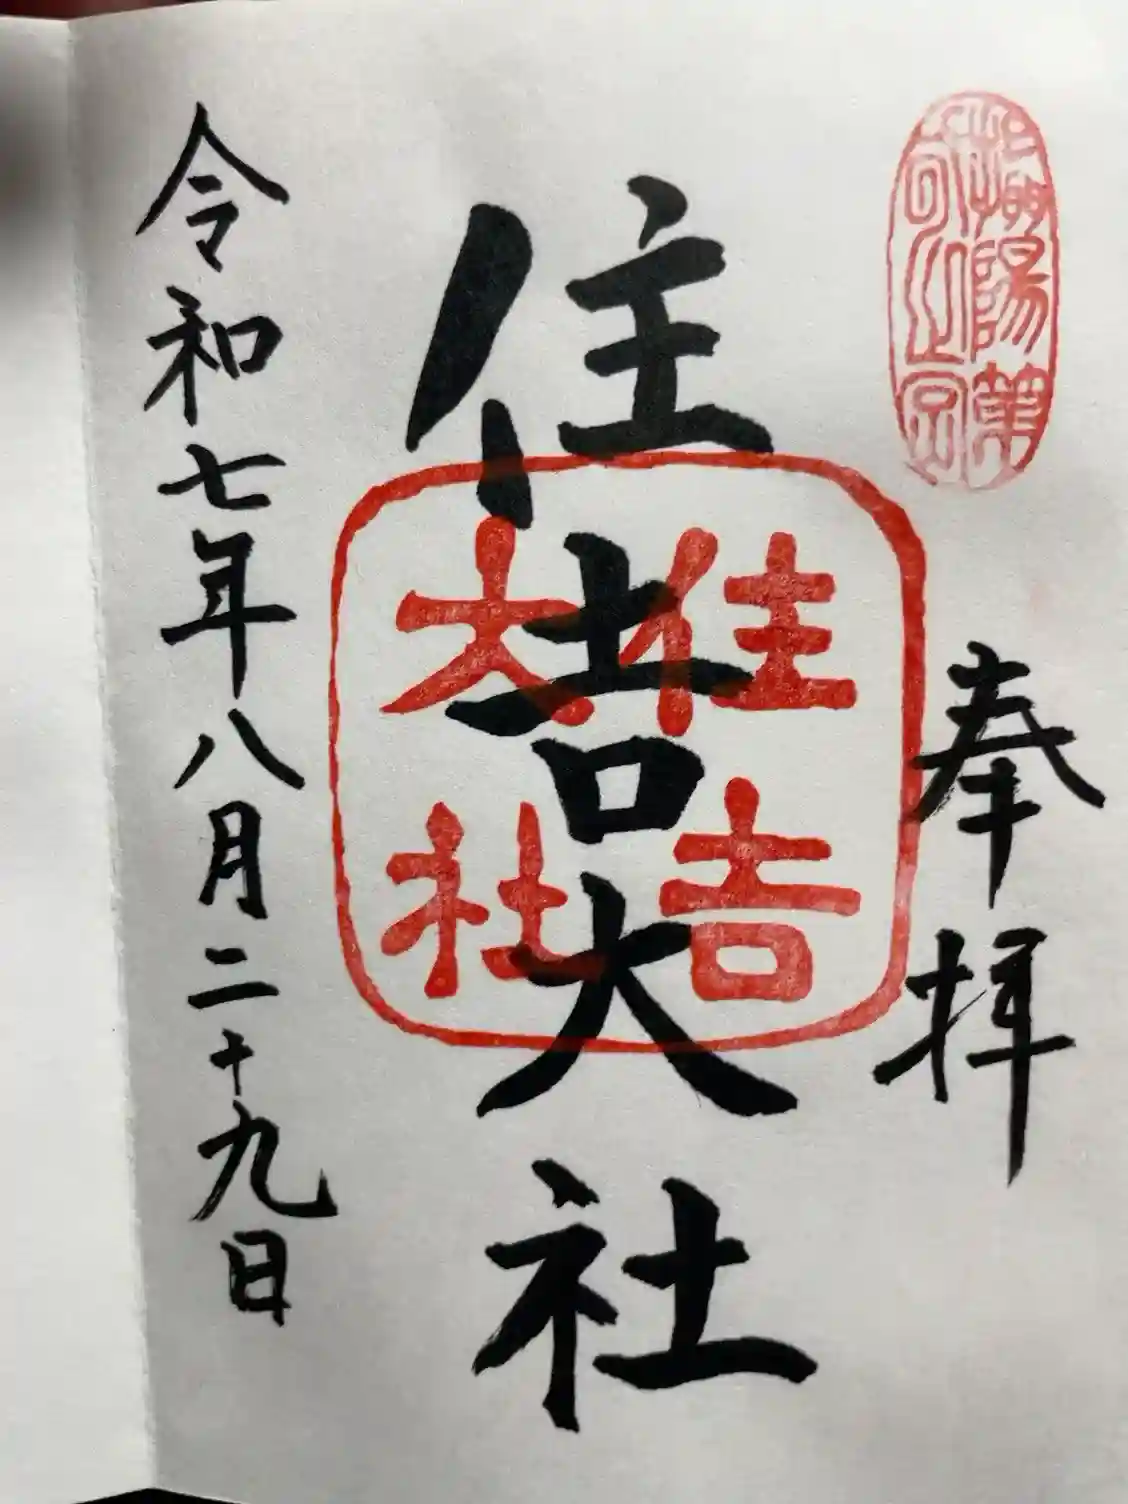 奉拝
住吉大社
住吉
大社
令和七年八月二十九日